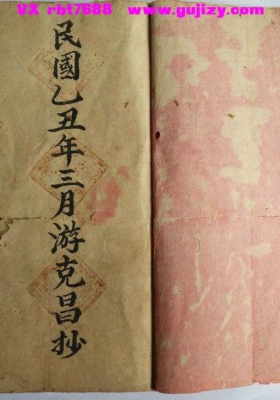 VX rbt7888 www.gujizy.com
民國乙丑年三月游克昌抄